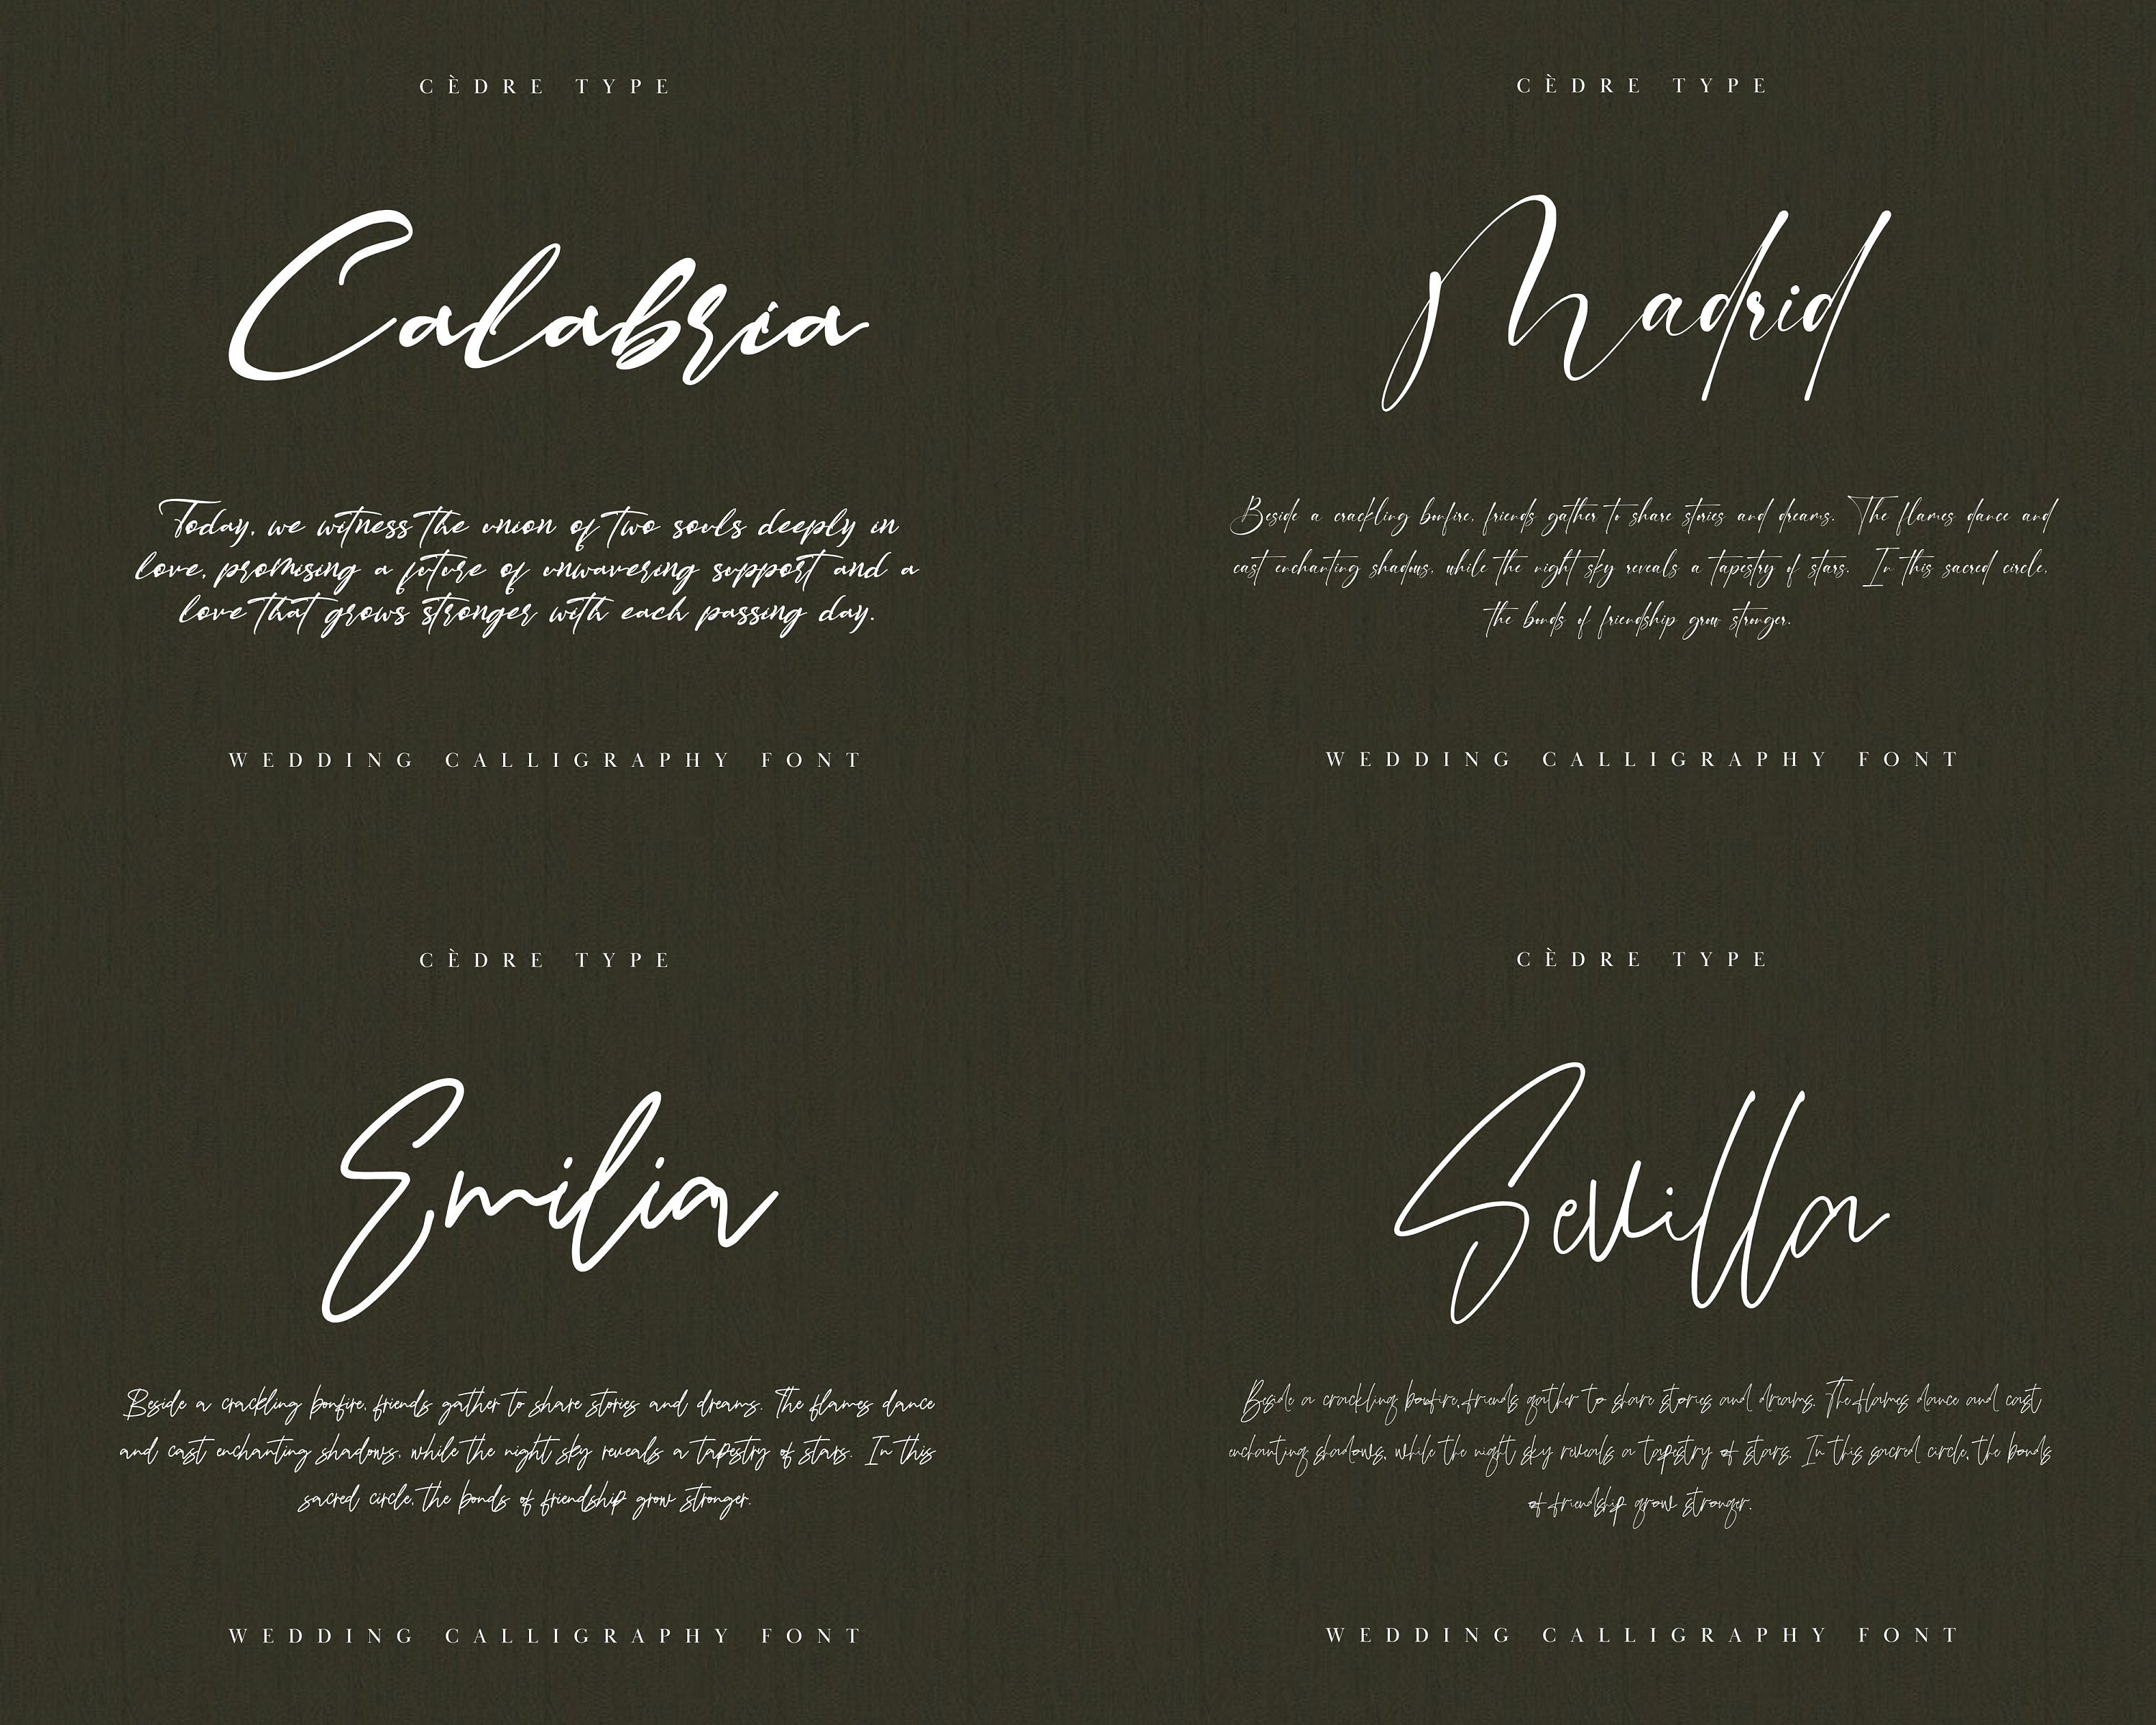 CÈDRE TYPE
Calabria
Today, we witness the union of two souls deeply in
love, promising a future of unwavering support and a
love that grows stronger with each passing day.
WEDDING CALLIGRAPHY FONT
CÈDRE TYPE
Madrid
Beside a crackling bonfire, friends gather to share stories and dreams. The flames dance and
cast enchanting shadows, while the night sky reveals a tapestry of stars. In this sacred circle,
the bonds of friendship grow stronger.
WEDDING CALLIGRAPHY FONT
CÈDRE TYPE
Emilia
Beside a crackling bonfire, friends gather to share stories and dreams. The flames dance
and cast enchanting shadows, while the night sky reveals a tapestry of stars. In this
sacred circle, the bonds of friendship grow stronger.
WEDDING CALLIGRAPHY FONT
CÈDRE TYPE
Sevilla
Beside a crackling bonfire, friends gather to share stories and dreams. The flames dance and cast
enchanting shadows, while the night sky reveals a tapestry of stars. In this sacred circle, the bonds
of friendship grow stronger.
WEDDING CALLIGRAPHY FONT